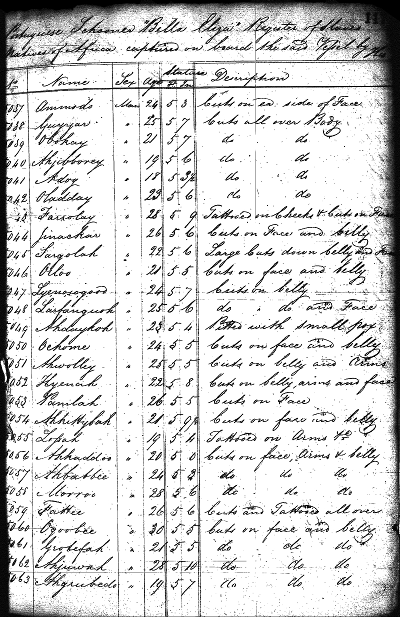 Portuguese Schooner "Bella Eliza" Register of Slaves
Natives of Africa captured on board the said Vessel by
No Name Sex Age Stature Ft In Description
037 Ammodo Man 24 5 3 Cuts on ea. side of Face
038 Guyyar " 25 5 7 Cuts all over Body
039 Obokay " 21 5 7 do do
040 Ahjibborey " 19 5 6 do do
041 Adog " 18 5 3½ do do
042 Oladday " 23 5 6 do do
043 Fassolay " 28 5 9 Tattooed on Cheeks & Cuts on Face
044 Jinackar " 26 5 6 Cuts on Face and belly
045 Sargolah " 22 5 6 Large Cuts down belly and
046 Olloo " 21 5 5 Cuts on face and belly
047 " 24 5 7 Cuts on belly
048 " 25 5 6 do " do and Face
049 " 23 5 4 Pitted with small pox
050 Ochome " 24 5 5 Cuts on face and belly
051 Ahwolley " 25 5 5 Cuts on belly and Arms
052 Hyenah " 22 5 8 Cuts on belly, arms and face
053 Vamlah " 26 5 5 Cuts on Face
054 " 21 5 9½ Cuts on face and belly
055 Lofah " 19 5 4 Tattooed on Arms &c
056 Ahkaddoo " 20 5 0 Cuts on face, Arms & belly
057 Ahbatbie " 24 5 2 do do do
058 Morroo " 28 5 6 do do do
059 Fattee " 26 5 6 Cuts and Tattooed all over
060 Ogoobee " 30 5 5 Cuts on face and belly
061 Yrobefah " 21 5 5 do do do
062 Ahjuwah " 28 5 10 do do do
063 Ahgrubedo " 19 5 7 do do do